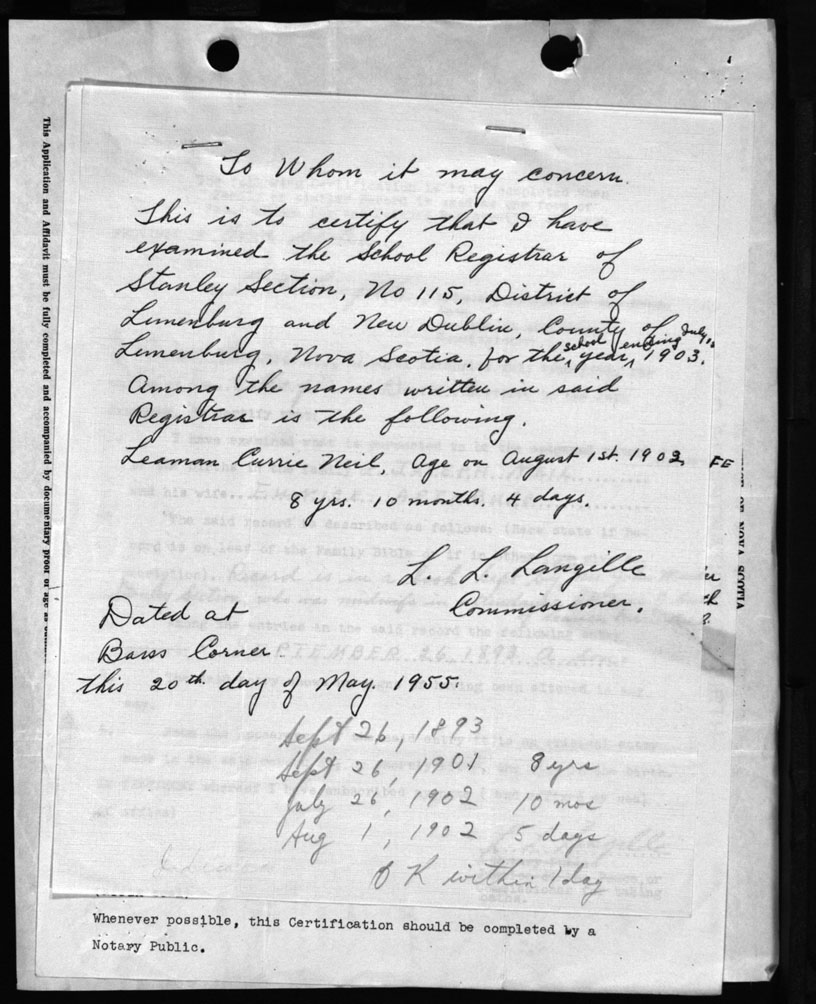 To Whom it may concern.
This is to certify that I have
examined the School Registrar of
Stanley Section, No 115, District of
Lunenburg and New Dublin, County of
Lunenburg, Nova Scotia, for the school year ending July, 1903.
Among the names written in said
Registrar is the following.
Leaman Currie Neil, Age on August 1st. 1902
8 yrs. 10 months. 4 days.
L. L. Langille
Commissioner.
Dated at
Barss Corner
this 20th. day of May. 1955
Sept 26, 1893
Sept 26, 1901 8 yrs
July 26, 1902 10 mos
Aug 1, 1902 5 days
O K within 1 day
Whenever possible, this Certification should be completed by a
Notary Public.
This Application and Affidavit must be fully completed and accompanied by documentary proof of age
OF NOVA SCOTIA
FE